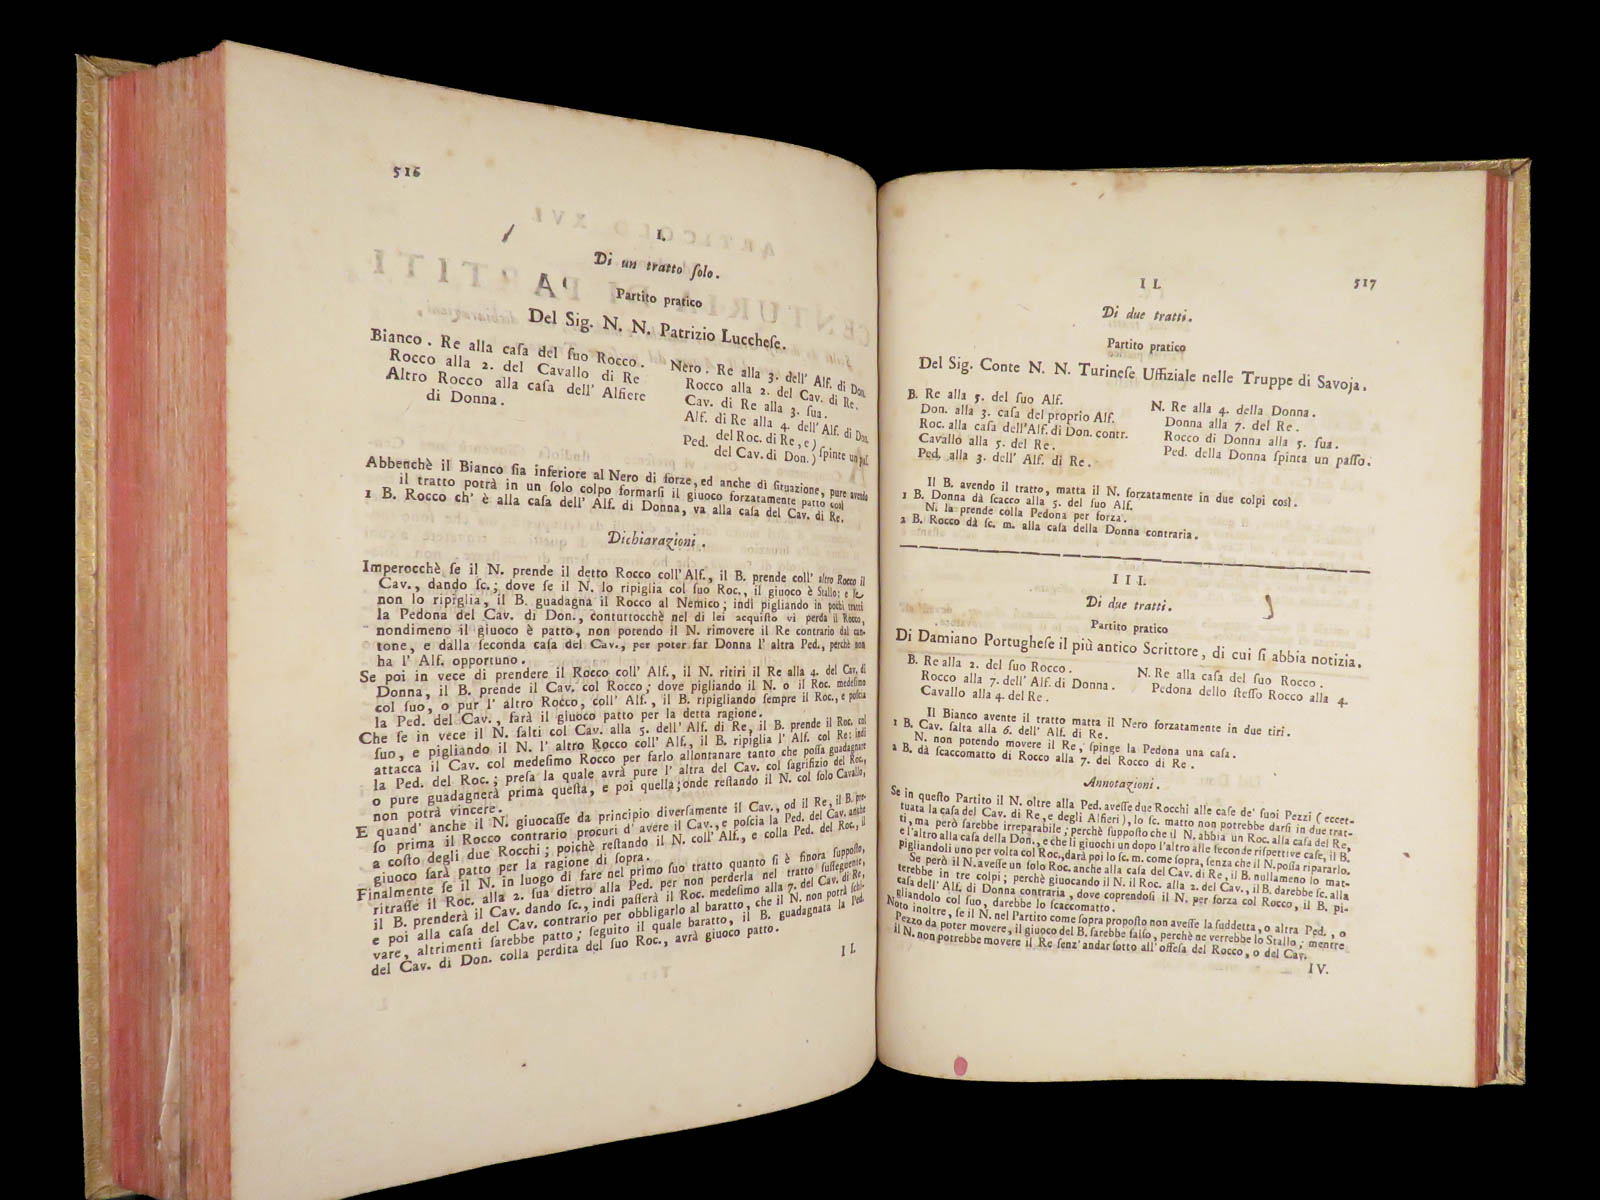 516
I.
Di un tratto ſolo.
Partito pratico
Del Sig. N. N. Patrizio Luccheſe.
Bianco. Re alla caſa del ſuo Rocco.
Rocco alla 2. del Cavallo di Re
Altro Rocco alla caſa dell' Alfiere
di Donna.
Nero. Re alla 3. dell' Alf. di Don.
Rocco alla 2. del Cav. di Re.
Cav. di Re alla 3. ſua.
Alf. di Re alla 4. dell' Alf. di Don.
Ped. del Roc. di Re, e ) ſpinte un paſ.
del Cav. di Don. )
Abbenchè il Bianco ſia inferiore al Nero di forze, ed anche di ſituazione, pure avendo
il tratto potrà in un ſolo colpo formarſi il giuoco forzatamente patto così
1 B. Rocco ch' è alla caſa dell' Alf. di Donna, va alla caſa del Cav. di Re.
Dichiarazioni.
Imperocchè ſe il N. prende il detto Rocco coll' Alf., il B. prende coll' altro Rocco il
Cav., dando ſc.; dove ſe il N. lo ripiglia col ſuo Roc., il giuoco è Stallo; e ſe
non lo ripiglia, il B. guadagna il Rocco al Nemico; indi pigliando in pochi tratti
la Pedona del Cav. di Don., contuttocchè nel di lei acquiſto vi perda il Rocco,
nondimeno il giuoco è patto, non potendo il N. rimovere il Re contrario dal can-
tone, e dalla ſeconda caſa del Cav., per poter far Donna l' altra Ped., perchè non
ha l' Alf. opportuno.
Se poi in vece di prendere il Rocco coll' Alf., il N. ritiri il Re alla 4. del Cav. di
Donna, il B. prende il Cav. col Rocco; dove pigliando il N. o il Roc. medeſimo
col ſuo, o pur l' altro Rocco, coll' Alf., il B. ripigliando ſempre il Roc., e poſcia
la Ped. del Cav., farà il giuoco patto per la detta ragione.
Che ſe in vece il N. ſalti col Cav. alla 5. dell' Alf. di Re, il B. prende il Roc. col
ſuo, e pigliando il N. l' altro Rocco coll' Alf., il B. ripiglia l' Alf. col Re: indi
attacca il Cav. col medeſimo Rocco per farlo allontanare tanto che poſſa guadagnare
la Ped. del Roc.; preſa la quale avrà pure l' altra del Cav. col ſagrifizio del Roc.,
o pure guadagnerà prima queſta, e poi quella; onde reſtando il N. col ſolo Cavallo,
non potrà vincere.
E quand' anche il N. giuocaſſe da principio diverſamente il Cav., od il Re, il B. pre-
ſo prima il Rocco contrario procuri d' avere il Cav., e poſcia la Ped. del Cav. anche
a coſto degli due Rocchi; poichè reſtando il N. coll' Alf., e colla Ped. del Roc., il
giuoco ſarà patto per la ragione di ſopra.
Finalmente ſe il N. in luogo di fare nel primo ſuo tratto quanto ſi è finora ſuppoſto,
ritraſſe il Roc. alla 2. ſua dietro alla Ped. per non perderla nel tratto ſuſſeguente,
il B. prenderà il Cav. dando ſc., indi paſſerà il Roc. medeſimo alla 7. del Cav. di Re,
e poi alla caſa del Cav. contrario per obbligarlo al baratto, che il N. non potrà ſchi-
vare, altrimenti ſarebbe patto; ſeguito il quale baratto, il B. guadagnata la Ped.
del Cav. di Don. colla perdita del ſuo Roc., avrà giuoco patto.
II.
II.
517
Di due tratti.
Partito pratico
Del Sig. Conte N. N. Turineſe Uffiziale nelle Truppe di Savoja.
B. Re alla 5. del ſuo Alf.
Don. alla 3. caſa del proprio Alf.
Roc. alla caſa dell' Alf. di Don. contr.
Cavallo alla 5. del Re.
Ped. alla 3. dell' Alf. di Re.
N. Re alla 4. della Donna.
Donna alla 7. del Re.
Rocco di Donna alla 5. ſua.
Ped. della Donna ſpinta un paſſo.
Il B. avendo il tratto, matta il N. forzatamente in due colpi così.
1 B. Donna dà ſcacco alla 5. del ſuo Alf.
N. la prende colla Pedona per forza.
2 B. Rocco dà ſc. m. alla caſa della Donna contraria.
III.
Di due tratti.
Partito pratico
Di Damiano Portugheſe il più antico Scrittore, di cui ſi abbia notizia.
B. Re alla 2. del ſuo Rocco.
Rocco alla 7. dell' Alf. di Donna.
Cavallo alla 4. del Re.
N. Re alla caſa del ſuo Rocco.
Pedona dello ſteſſo Rocco alla 4.
Il Bianco avente il tratto matta il Nero forzatamente in due tiri.
1 B. Cav. ſalta alla 6. dell' Alf. di Re.
N. non potendo movere il Re, ſpinge la Pedona una caſa.
2 B. dà ſcaccomatto di Rocco alla 7. del Rocco di Re.
Annotazioni.
Se in queſto Partito il N. oltre alla Ped. aveſſe due Rocchi alle caſe de' ſuoi Pezzi (eccet-
tuata la caſa del Cav. di Re, e degli Alfieri), lo ſc. matto non potrebbe darſi in due trat-
ti, ma però ſarebbe irreparabile; perchè ſuppoſto che il N. abbia un Roc. alla caſa del Re,
e l'altro alla caſa della Don., e che li giuochi un dopo l'altro alle ſeconde riſpettive caſe, il B.
pigliandoli uno per volta col Roc., darà poi lo ſc. m. come ſopra, ſenza che il N. poſſa ripararlo.
Se però il N. aveſſe un ſolo Roc. anche alla caſa del Cav. di Re, il B. nullameno lo mat-
terebbe in tre colpi; perchè giuocando il N. il Roc. alla 2. del Cav., il B. darebbe ſc. alla
caſa dell' Alf. di Donna contraria, dove coprendoſi il N. per forza col Rocco, il B. pi-
gliandolo col ſuo, darebbe lo ſcaccomatto.
Noto inoltre, ſe il N. nel Partito come ſopra propoſto non aveſſe la ſuddetta, o altra Ped., o
Pezzo da poter movere, il giuoco del B. ſarebbe falſo, perchè ne verrebbe lo Stallo; mentre
il N. non potrebbe movere il Re ſenz' andar ſotto all' offeſa del Rocco, o del Cav.
IV.